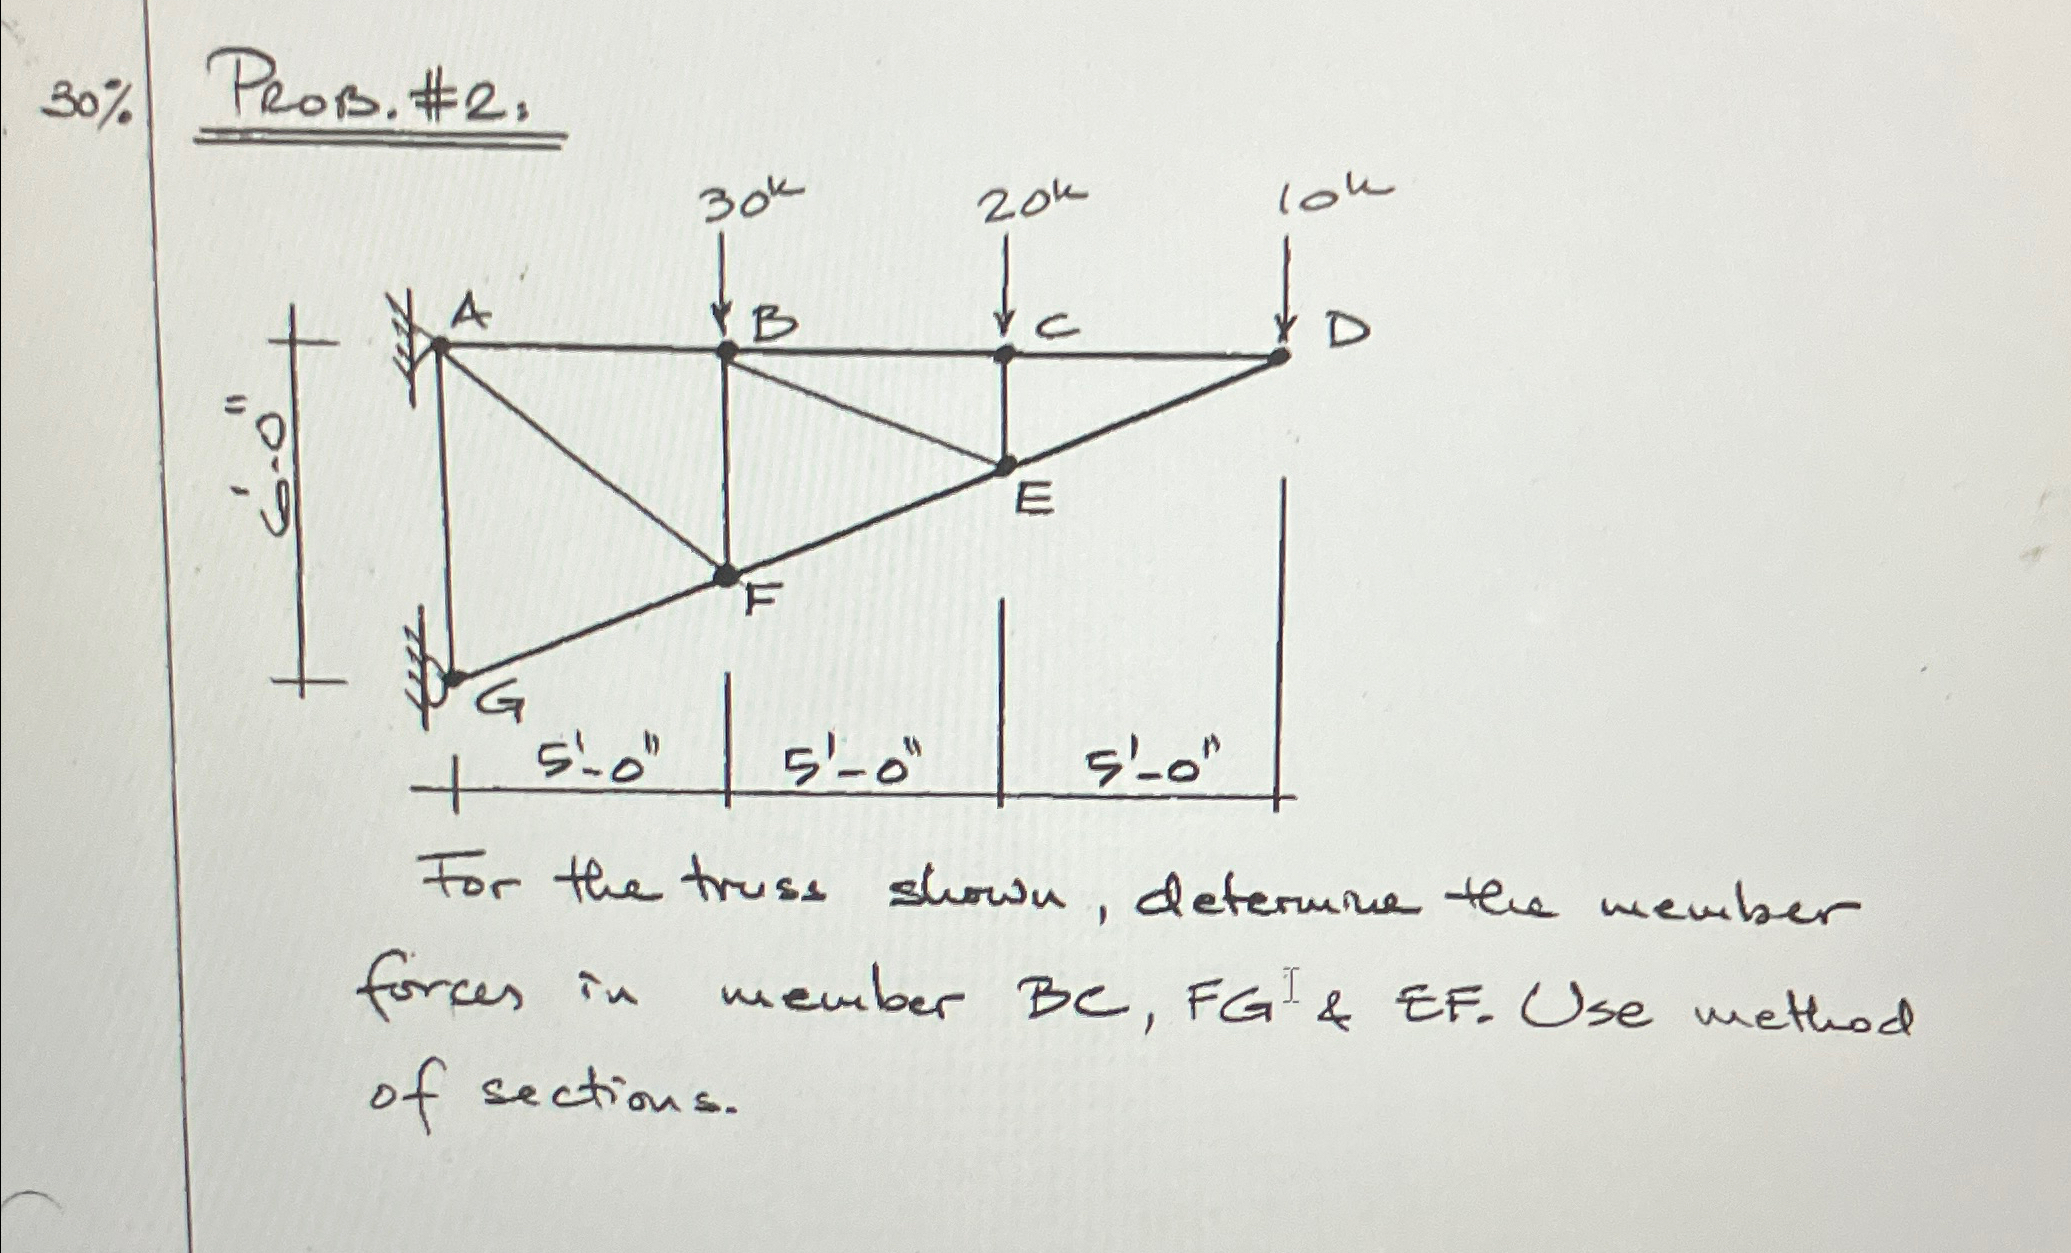 30% PROB. #2:
30k 20k 10k
A B C D
6'-0"
E
F
G
5'-0" 5'-0" 5'-0"
For the truss shown, determine the member
forces in member BC, FG & EF. Use method
of sections.